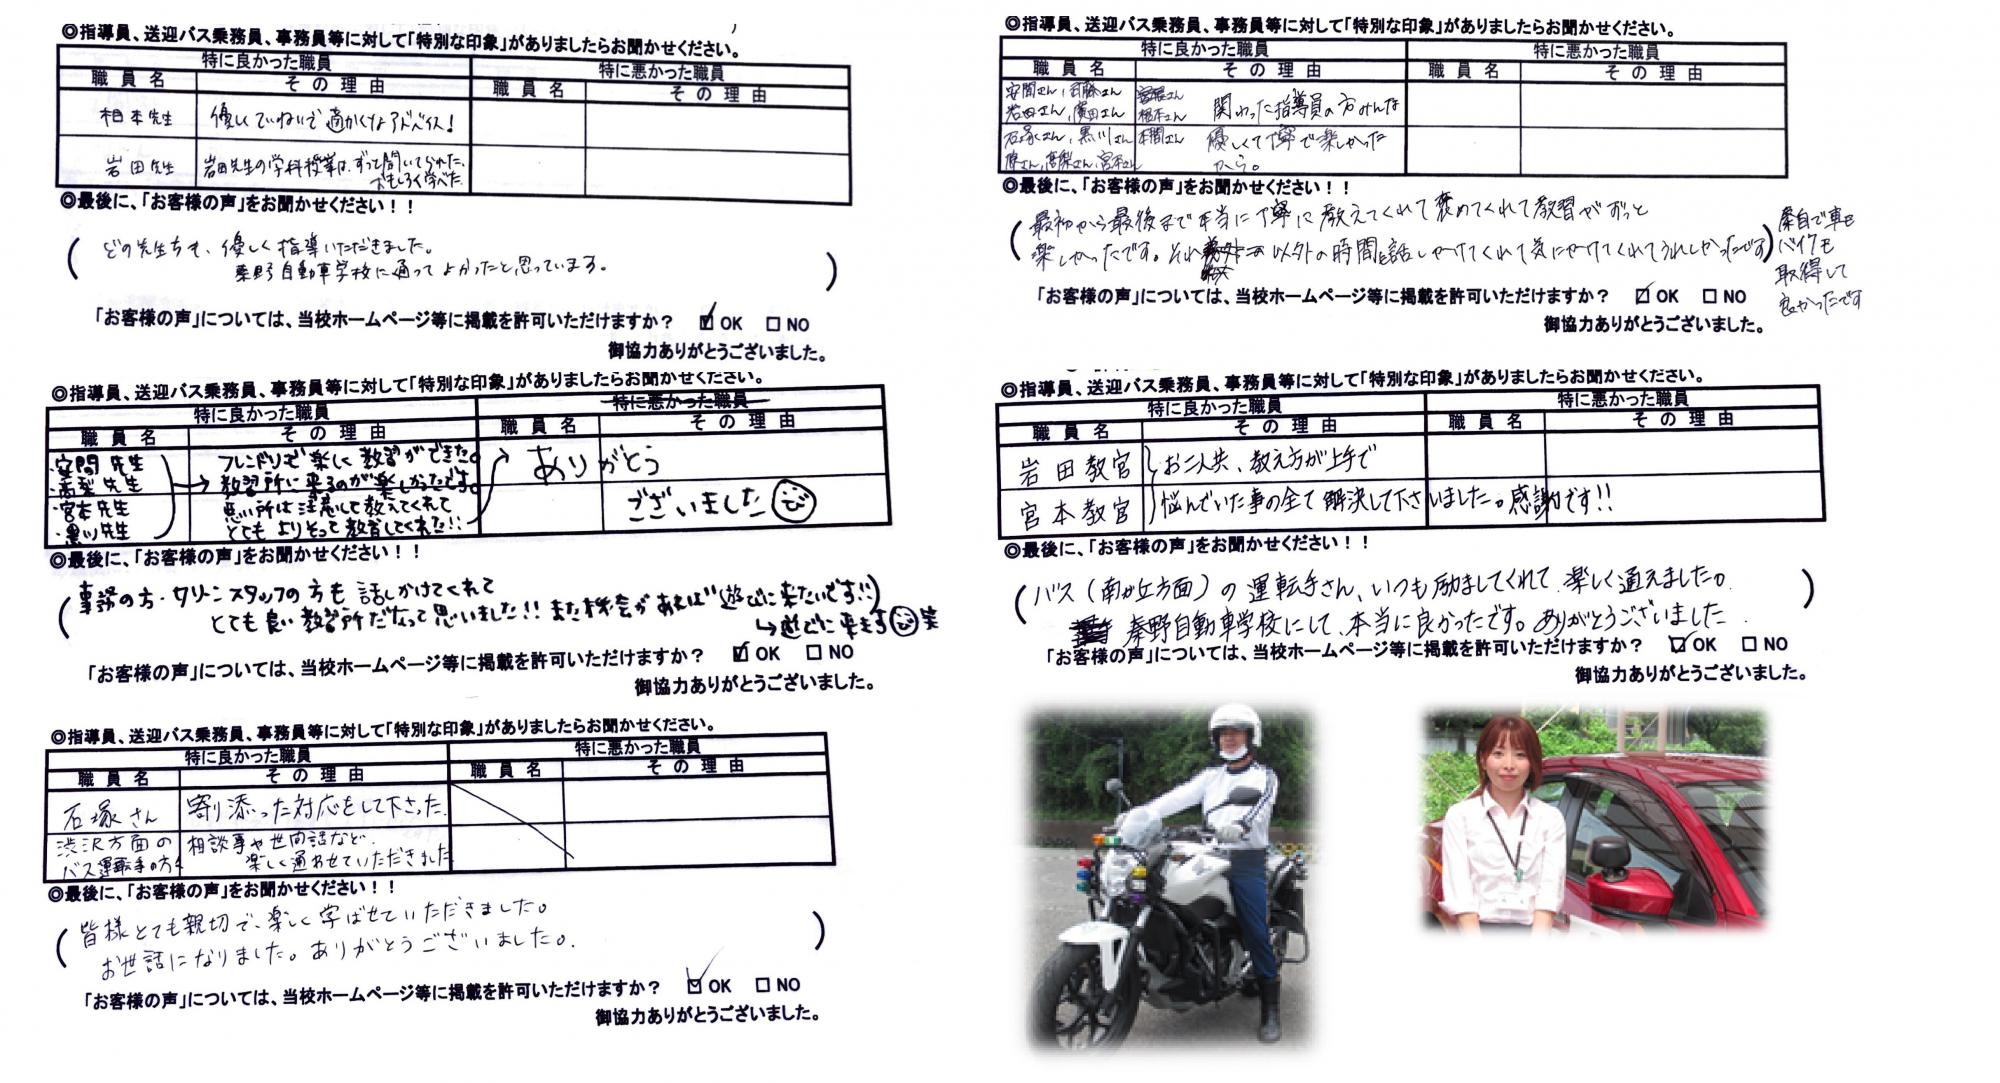 ◎指導員、送迎バス乗務員、事務員等に対して「特別な印象」がありましたらお聞かせください。
特に良かった職員 特に悪かった職員
職員名 その理由 職員名 その理由
柏木先生 優しくていねいで適かくなアドバイス！
岩田先生 岩田先生の学科授業は、ずっと聞いてられた、
おもしろく学べた
◎最後に、「お客様の声」をお聞かせください！！
どの先生方も、優しく指導いただきました。
秦野自動車学校に通ってよかったと思っています。
「お客様の声」については、当校ホームページ等に掲載を許可いただけますか？ ☑ OK □ NO
御協力ありがとうございました。
◎指導員、送迎バス乗務員、事務員等に対して「特別な印象」がありましたらお聞かせください。
特に良かった職員 特に悪かった職員
職員名 その理由 職員名 その理由
・安間先生 フレンドリで楽しく教習ができた。
・高梨先生 → 教習所に来るのが楽しかったです。
・宮本先生 悪い所は注意して教えてくれて
・黒川先生 とてもよりそって教習してくれた!!
ありがとう
ございました
◎最後に、「お客様の声」をお聞かせください！！
(事務の方・クリーンスタッフの方も話しかけてくれて
とても良い教習所だなって思いました!! また機会があれば遊びに来たいです!!)
→遊びに来ます 笑
「お客様の声」については、当校ホームページ等に掲載を許可いただけますか？ ☑ OK □ NO
御協力ありがとうございました。
◎指導員、送迎バス乗務員、事務員等に対して「特別な印象」がありましたらお聞かせください。
特に良かった職員 特に悪かった職員
職員名 その理由 職員名 その理由
石塚さん 寄り添った対応をして下さった。
渋沢方面の 相談事や世間話など、
バス運転手の方々 楽しく通わせていただきました
◎最後に、「お客様の声」をお聞かせください！！
(皆様とても親切で、楽しく学ばせていただきました。
お世話になりました。ありがとうございました。)
「お客様の声」については、当校ホームページ等に掲載を許可いただけますか？ ☑ OK □ NO
御協力ありがとうございました。
◎指導員、送迎バス乗務員、事務員等に対して「特別な印象」がありましたらお聞かせください。
特に良かった職員 特に悪かった職員
職員名 その理由 職員名 その理由
安間さん、さん
岩田さん、濱田さん 関わった指導員の方みんな
石塚さん、黒川さん 本間さん 優しくて丁寧で楽しかった
さん、高梨さん、宮本さん から。
◎最後に、「お客様の声」をお聞かせください！！
(最初から最後まで本当に丁寧に教えてくれて褒めてくれて教習がずっと
楽しかったです。それ以外の時間も話しかけてくれて気にかけてくれてうれしかったです)
秦自で車も
バイクも
取得して
良かったです
「お客様の声」については、当校ホームページ等に掲載を許可いただけますか？ ☑ OK □ NO
御協力ありがとうございました。
◎指導員、送迎バス乗務員、事務員等に対して「特別な印象」がありましたらお聞かせください。
特に良かった職員 特に悪かった職員
職員名 その理由 職員名 その理由
岩田教官 お二人共、教え方が上手で
宮本教官 悩んでいた事の全て解決して下さいました。感謝です!!
◎最後に、「お客様の声」をお聞かせください！！
(バス（南が丘方面）の運転手さん、いつも励ましてくれて、楽しく通えました。
秦野自動車学校にして、本当に良かったです。ありがとうございました)
「お客様の声」については、当校ホームページ等に掲載を許可いただけますか？ ☑ OK □ NO
御協力ありがとうございました。